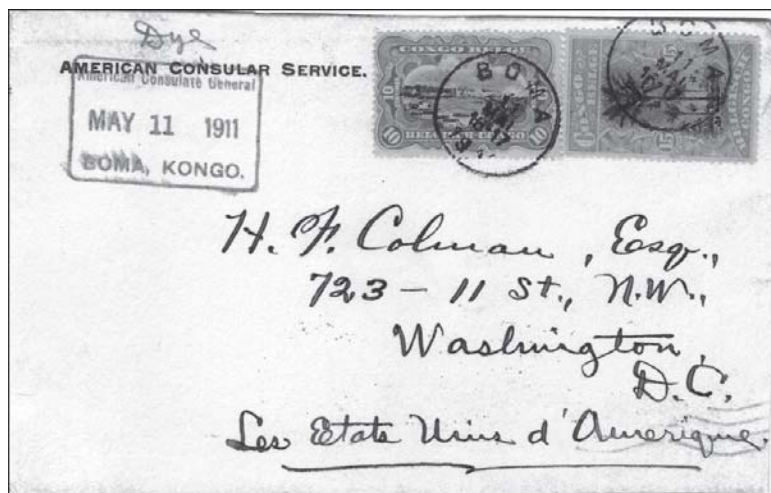 Dye
AMERICAN CONSULAR SERVICE.
American Consulate General
MAY 11 1911
BOMA, KONGO.
CONGO BELGE
10
10 10
BELGISCH CONGO
BOMA
15
CONGO BELGE
BELGISCH CONGO
15
BOMA
H. F. Colman, Esq.,
723 - 11 St., N.W.,
Washington,
D.C.
Les Etats Unis d'Amerique.